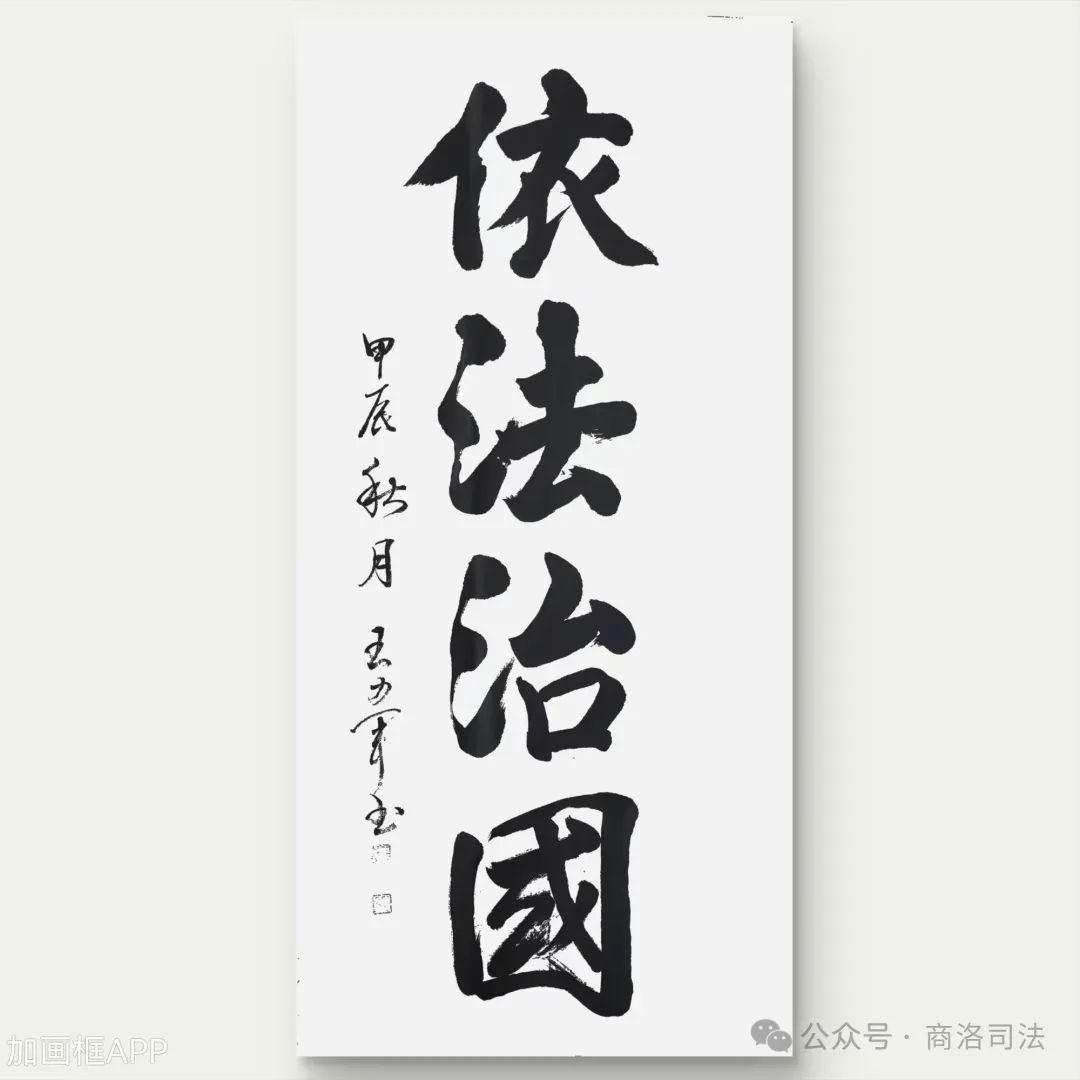 依法治國
甲辰秋月 王力军书
加画框APP
公众号·商洛司法